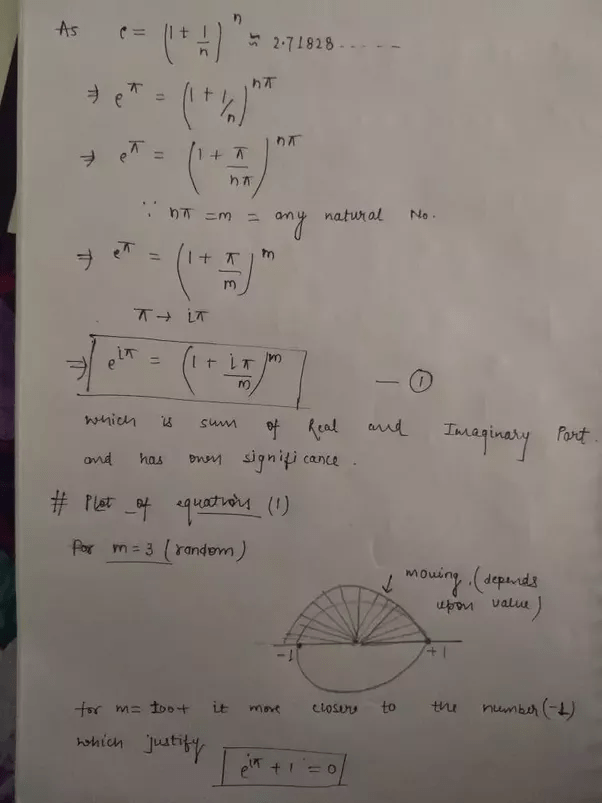 As e = (1 + 1/n)^n ≈ 2.71828 - - - - -
⇒ e^π = (1 + 1/n)^nπ
⇒ e^π = (1 + π/nπ)^nπ
∵ nπ = m = any natural No.
⇒ e^π = (1 + π/m)^m
π → iπ
⇒ e^iπ = (1 + iπ/m)^m — ①
which is sum of Real and Imaginary Part.
and has own significance.
# Plot of equations (1)
For m = 3 (random)
moving. (depends
upon value)
-1 +1
for m= 100+ it more closers to the number (-1)
which justify
e^iπ + 1 = 0